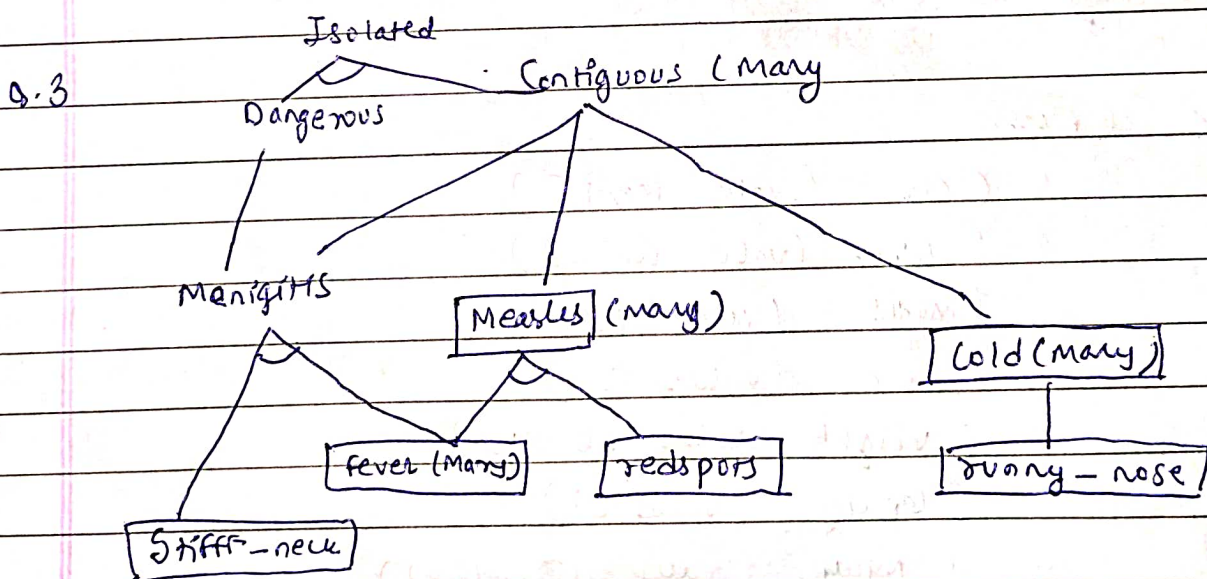 Isolated
Q.3
Contiguous (Mary
Dangerous
Menigitis
Measles (Mary)
Cold (Mary)
fever (Mary)
redspots
runny_nose
Stifff-neck